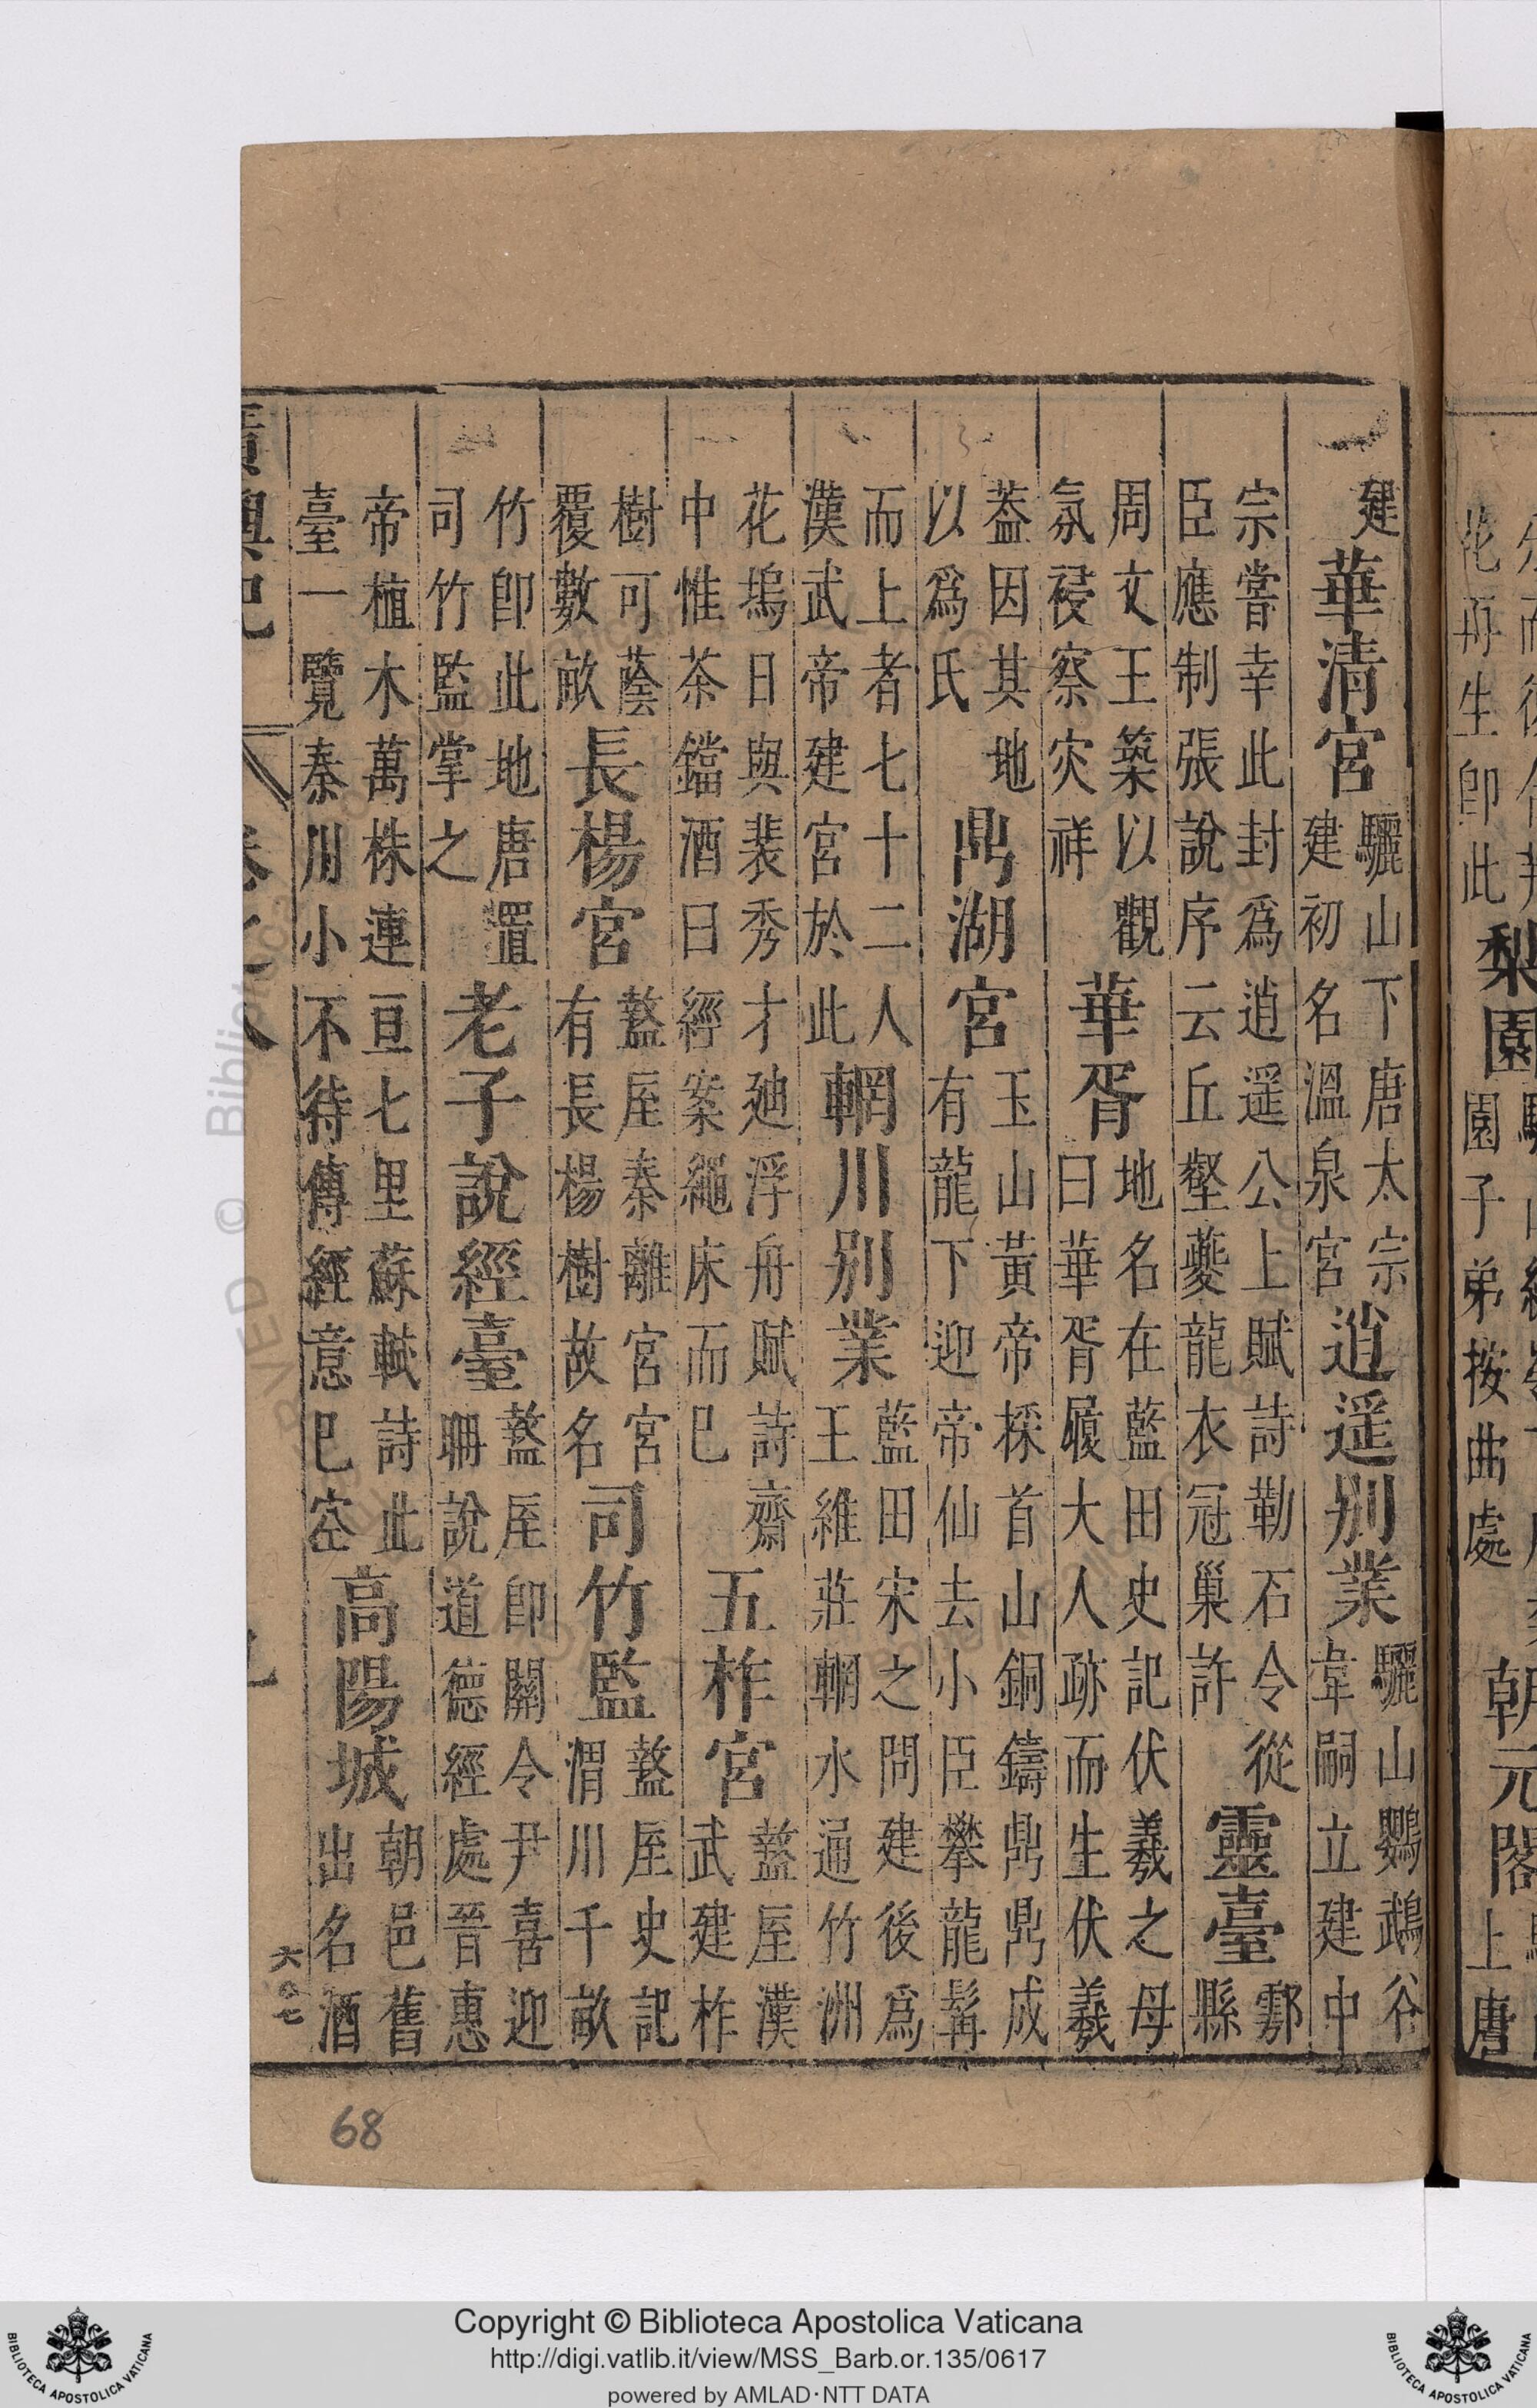 花丹生即此
梨園
園子弟按曲處
朝元閣
上唐
建
華清宮
驪山下唐太宗
建初名溫泉宮
逍遥别業
驪山鸚鵡谷
韋嗣立建中
宗嘗幸此封爲逍遥公上賦詩勒石令從
臣應制張說序云丘壑夔龍衣冠巢許
靈臺
鄠
縣
周文王築以觀
氛祲察灾祥
華胥
地名在藍田史記伏羲之母
曰華胥履大人跡而生伏羲
葢因其地
以爲氏
鼎湖宮
玉山黃帝採首山銅鑄鼎鼎成
有龍下迎帝仙去小臣攀龍髯
而上者七十二人
漢武帝建宮於此
輞川别業
藍田宋之問建後爲
王維莊輞水通竹洲
花塢日與裴秀才廸浮舟賦詩齋
中惟茶鐺酒臼經案繩床而巳
五柞宮
盩厔漢
武建柞
樹可蔭
覆數畝
長楊宮
盩厔秦離宮宮
有長楊樹故名
司竹監
盩厔史記
渭川千畝
竹即此地唐置
司竹監掌之
老子說經臺
盩厔即關令尹喜迎
耼說道德經處晉惠
帝植木萬株連亘七里蘇軾詩此
臺一覽秦川小不待傳經意巳空
高陽城
朝邑舊
出名酒
68
Copyright © Biblioteca Apostolica Vaticana
http://digi.vatlib.it/view/MSS_Barb.or.135/0617
powered by AMLAD·NTT DATA
BIBLIOTECA APOSTOLICA VATICANA
BIBLIOTECA APOSTOLICA VATICANA